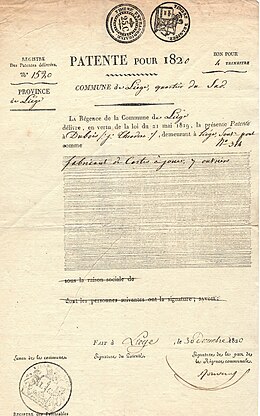 REGISTRE
Des Patentes délivrées.
N.° 1520
PROVINCE
de Liège
PATENTE POUR 1820
BON POUR
4 TRIMESTRE
COMMUNE de Liège, quartier du Sud
La Régence de la Commune de Liège
délivre, en vertu de la loi du 21 mai 1819, la présente Patente
à Dubois demeurant à Liège,
N.° 314
comme
fabricant de Cartes à jouer, 7 ouvriers
sous la raison sociale de
dont les personnes suivantes ont la signature, savoir:
FAIT à Liège le Décembre 1820
Sceau de la commune.
Signature du Patentable.
Signatures des
les Régences communales.